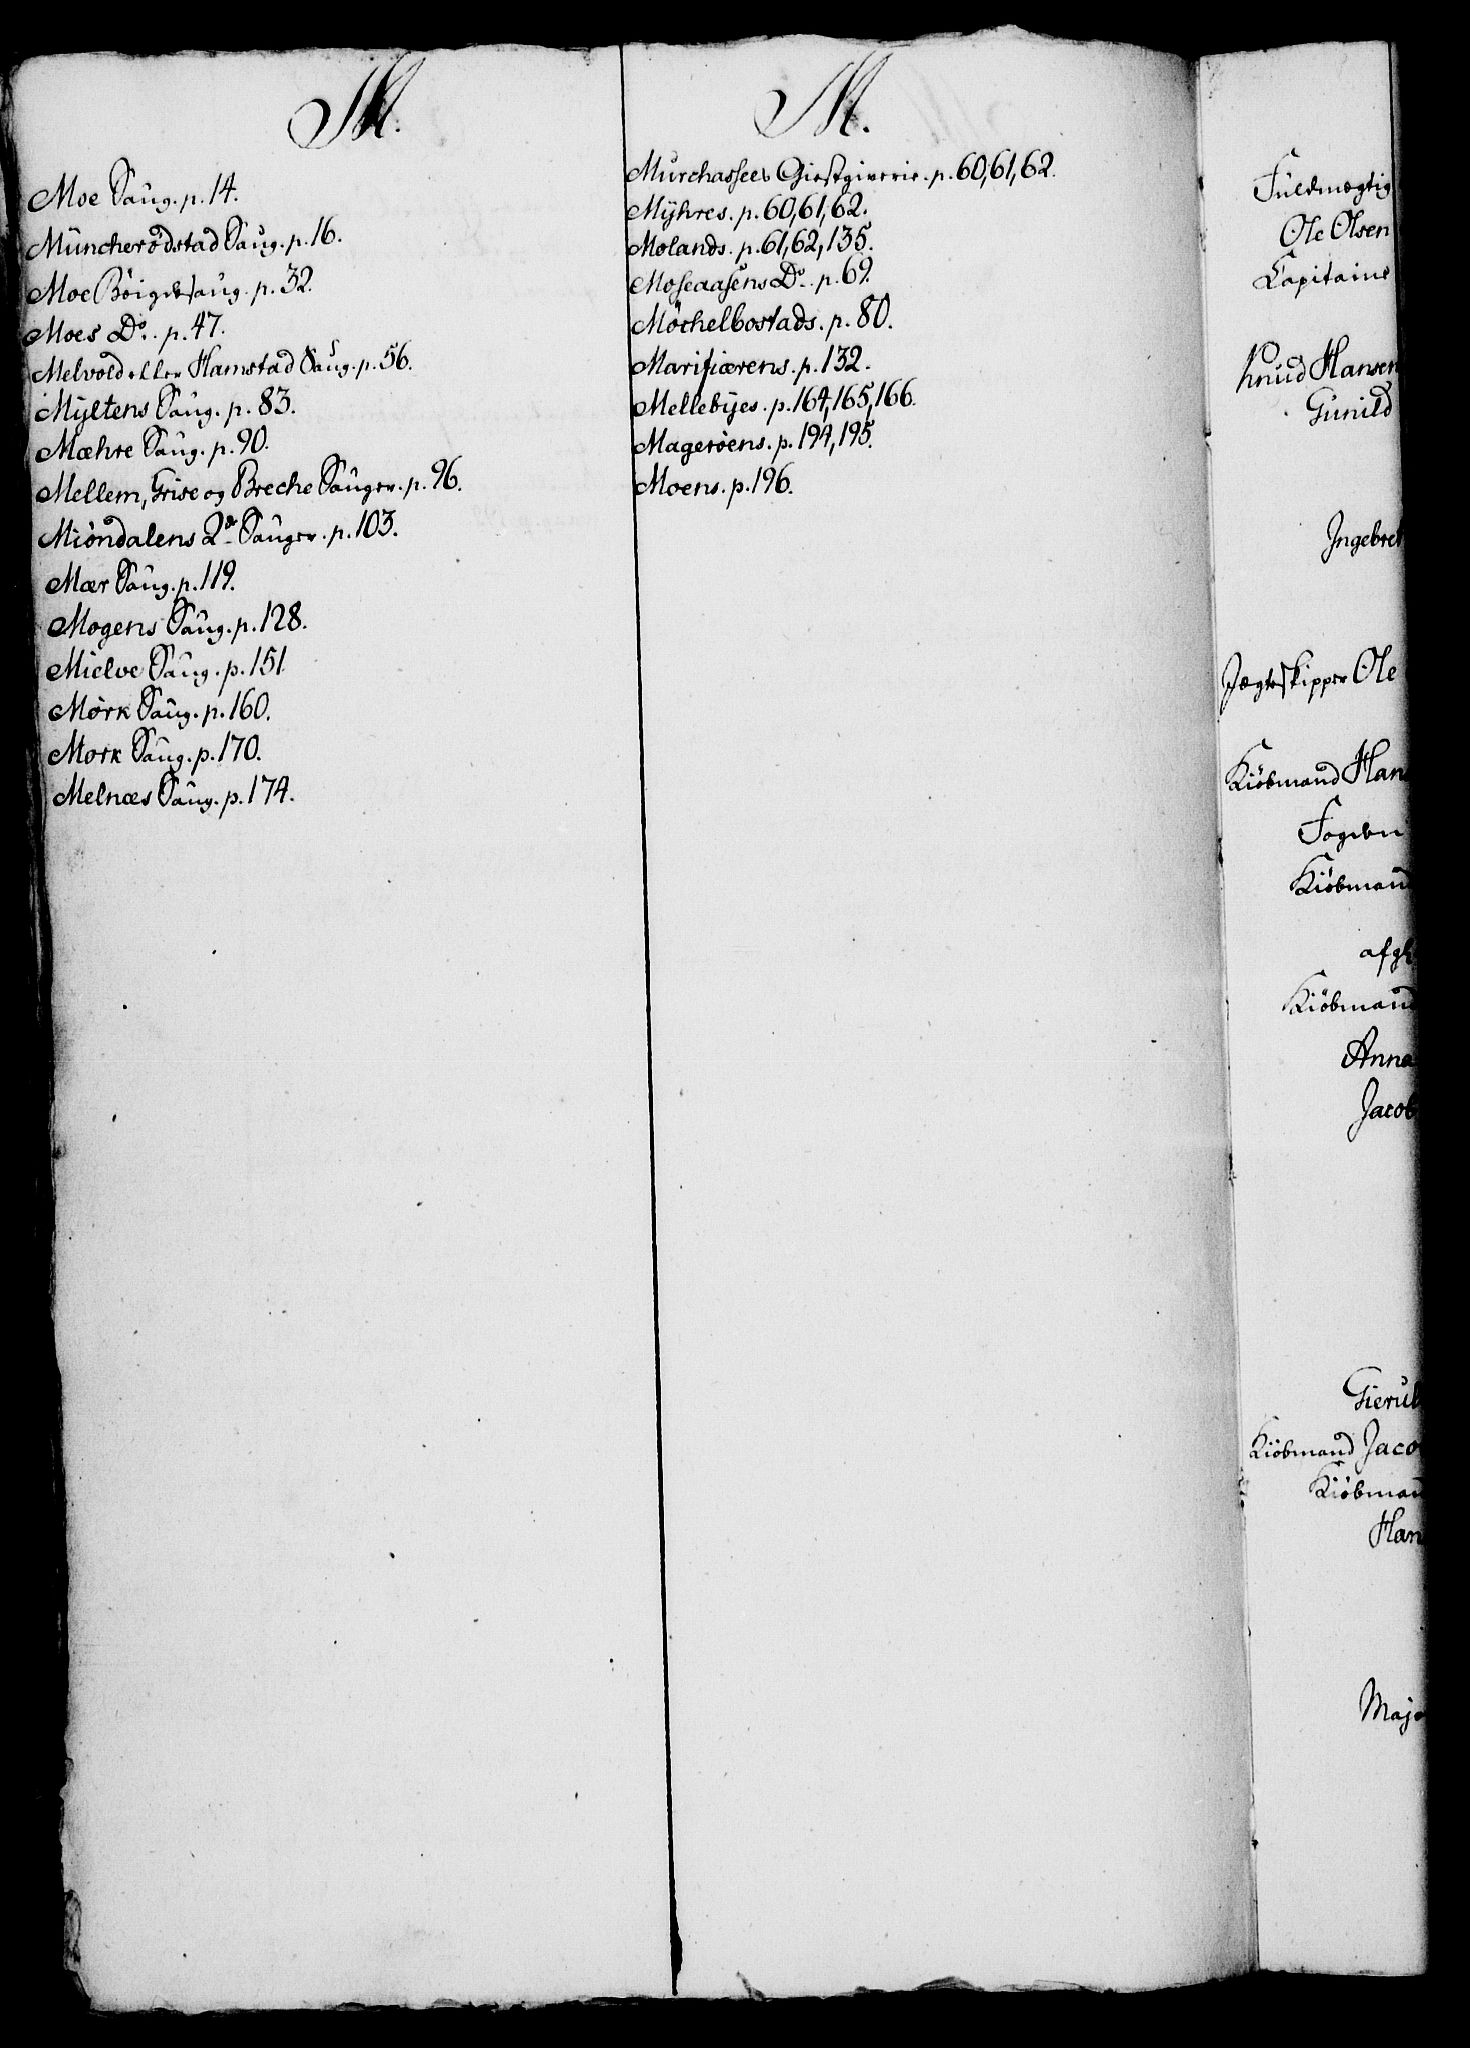 M.
Moe Saug. p. 14.
Müncherødstad Saug. p. 16.
Moe Böigdesaug. p. 32.
Moes Do. p. 47.
Melvold eller Hamstad Saug. p. 56.
Myltens Saug. p. 83.
Mæhre Saug. p. 90.
Mellem, Grise og Breche Sauger. p. 96.
Miöndalens 2de Sauger. p. 103.
Mær Saug. p. 119.
Mogens Saug. p. 128.
Mielve Saug. p. 151
Mörk Saug. p. 160.
Mork Saug. p. 170.
Melnæs Saug. p. 174.
M.
Murchassees Giestgiverie. p. 60, 61, 62.
Mÿhres. p. 60, 61, 62.
Molands. p. 61, 62, 135.
Moseaasens Do. p. 69.
Möchelbostads. p. 80.
Marifiærens. p. 132.
Mellebyes. p. 164, 165, 166.
Magerøens. p. 194, 195.
Moens. p. 196.
Fuldmægtig
Ole Olsen
Capitaine
Knud Hansen
Gunild
Ingebret
Jægteskipper Ole
Kiöbmand Han
Fogden
Kiöbmand
afg
Kiöbmand
Anna
Jacob
Gierul
Kiöbmand Jaco
Kiöbman
Han
Majo